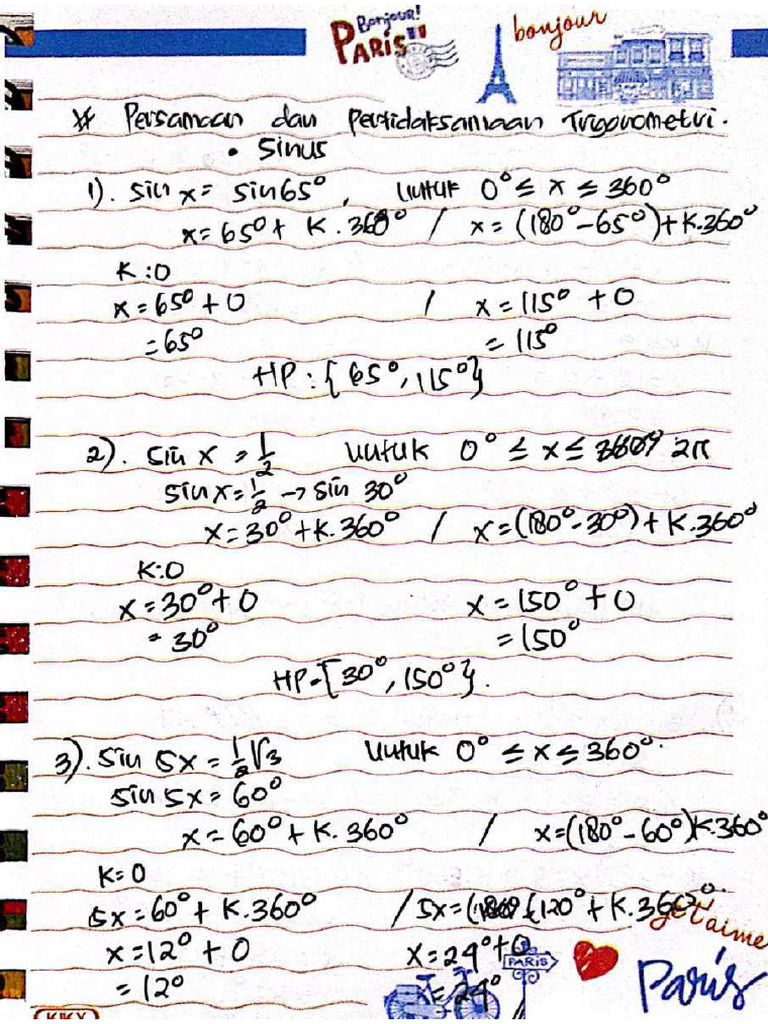 Bonjour!
PARIS
bonjour
* Persamaan dan Pertidaksamaan Trigonometri.
• Sinus
1). sin x = sin 65°, untuk 0° ≤ x ≤ 360°
x = 65° + K . 360° / x = (180° - 65°) + K.360°
K : 0
x = 65° + 0 / x = 115° + 0
= 65° = 115°
HP : { 65°, 115° }
2). sin x = 1/2 untuk 0° ≤ x ≤ 2π
sin x = 1/2 → sin 30°
x = 30° + K. 360° / x = (180° - 30°) + K. 360°
K : 0
x = 30° + 0 x = 150° + 0
= 30° = 150°
HP = { 30°, 150° }.
3). sin 5x = 1/2 √3 untuk 0° ≤ x ≤ 360°.
sin 5x = 60°
x = 60° + K. 360° / x = (180° - 60°) K.360°
K = 0
5x = 60° + K. 360° / 5x = (120° + K. 360°.
x = 12° + 0 x = 24° + 0
= 12° x = 24°
je t'aime
PARIS
Paris
KIKY